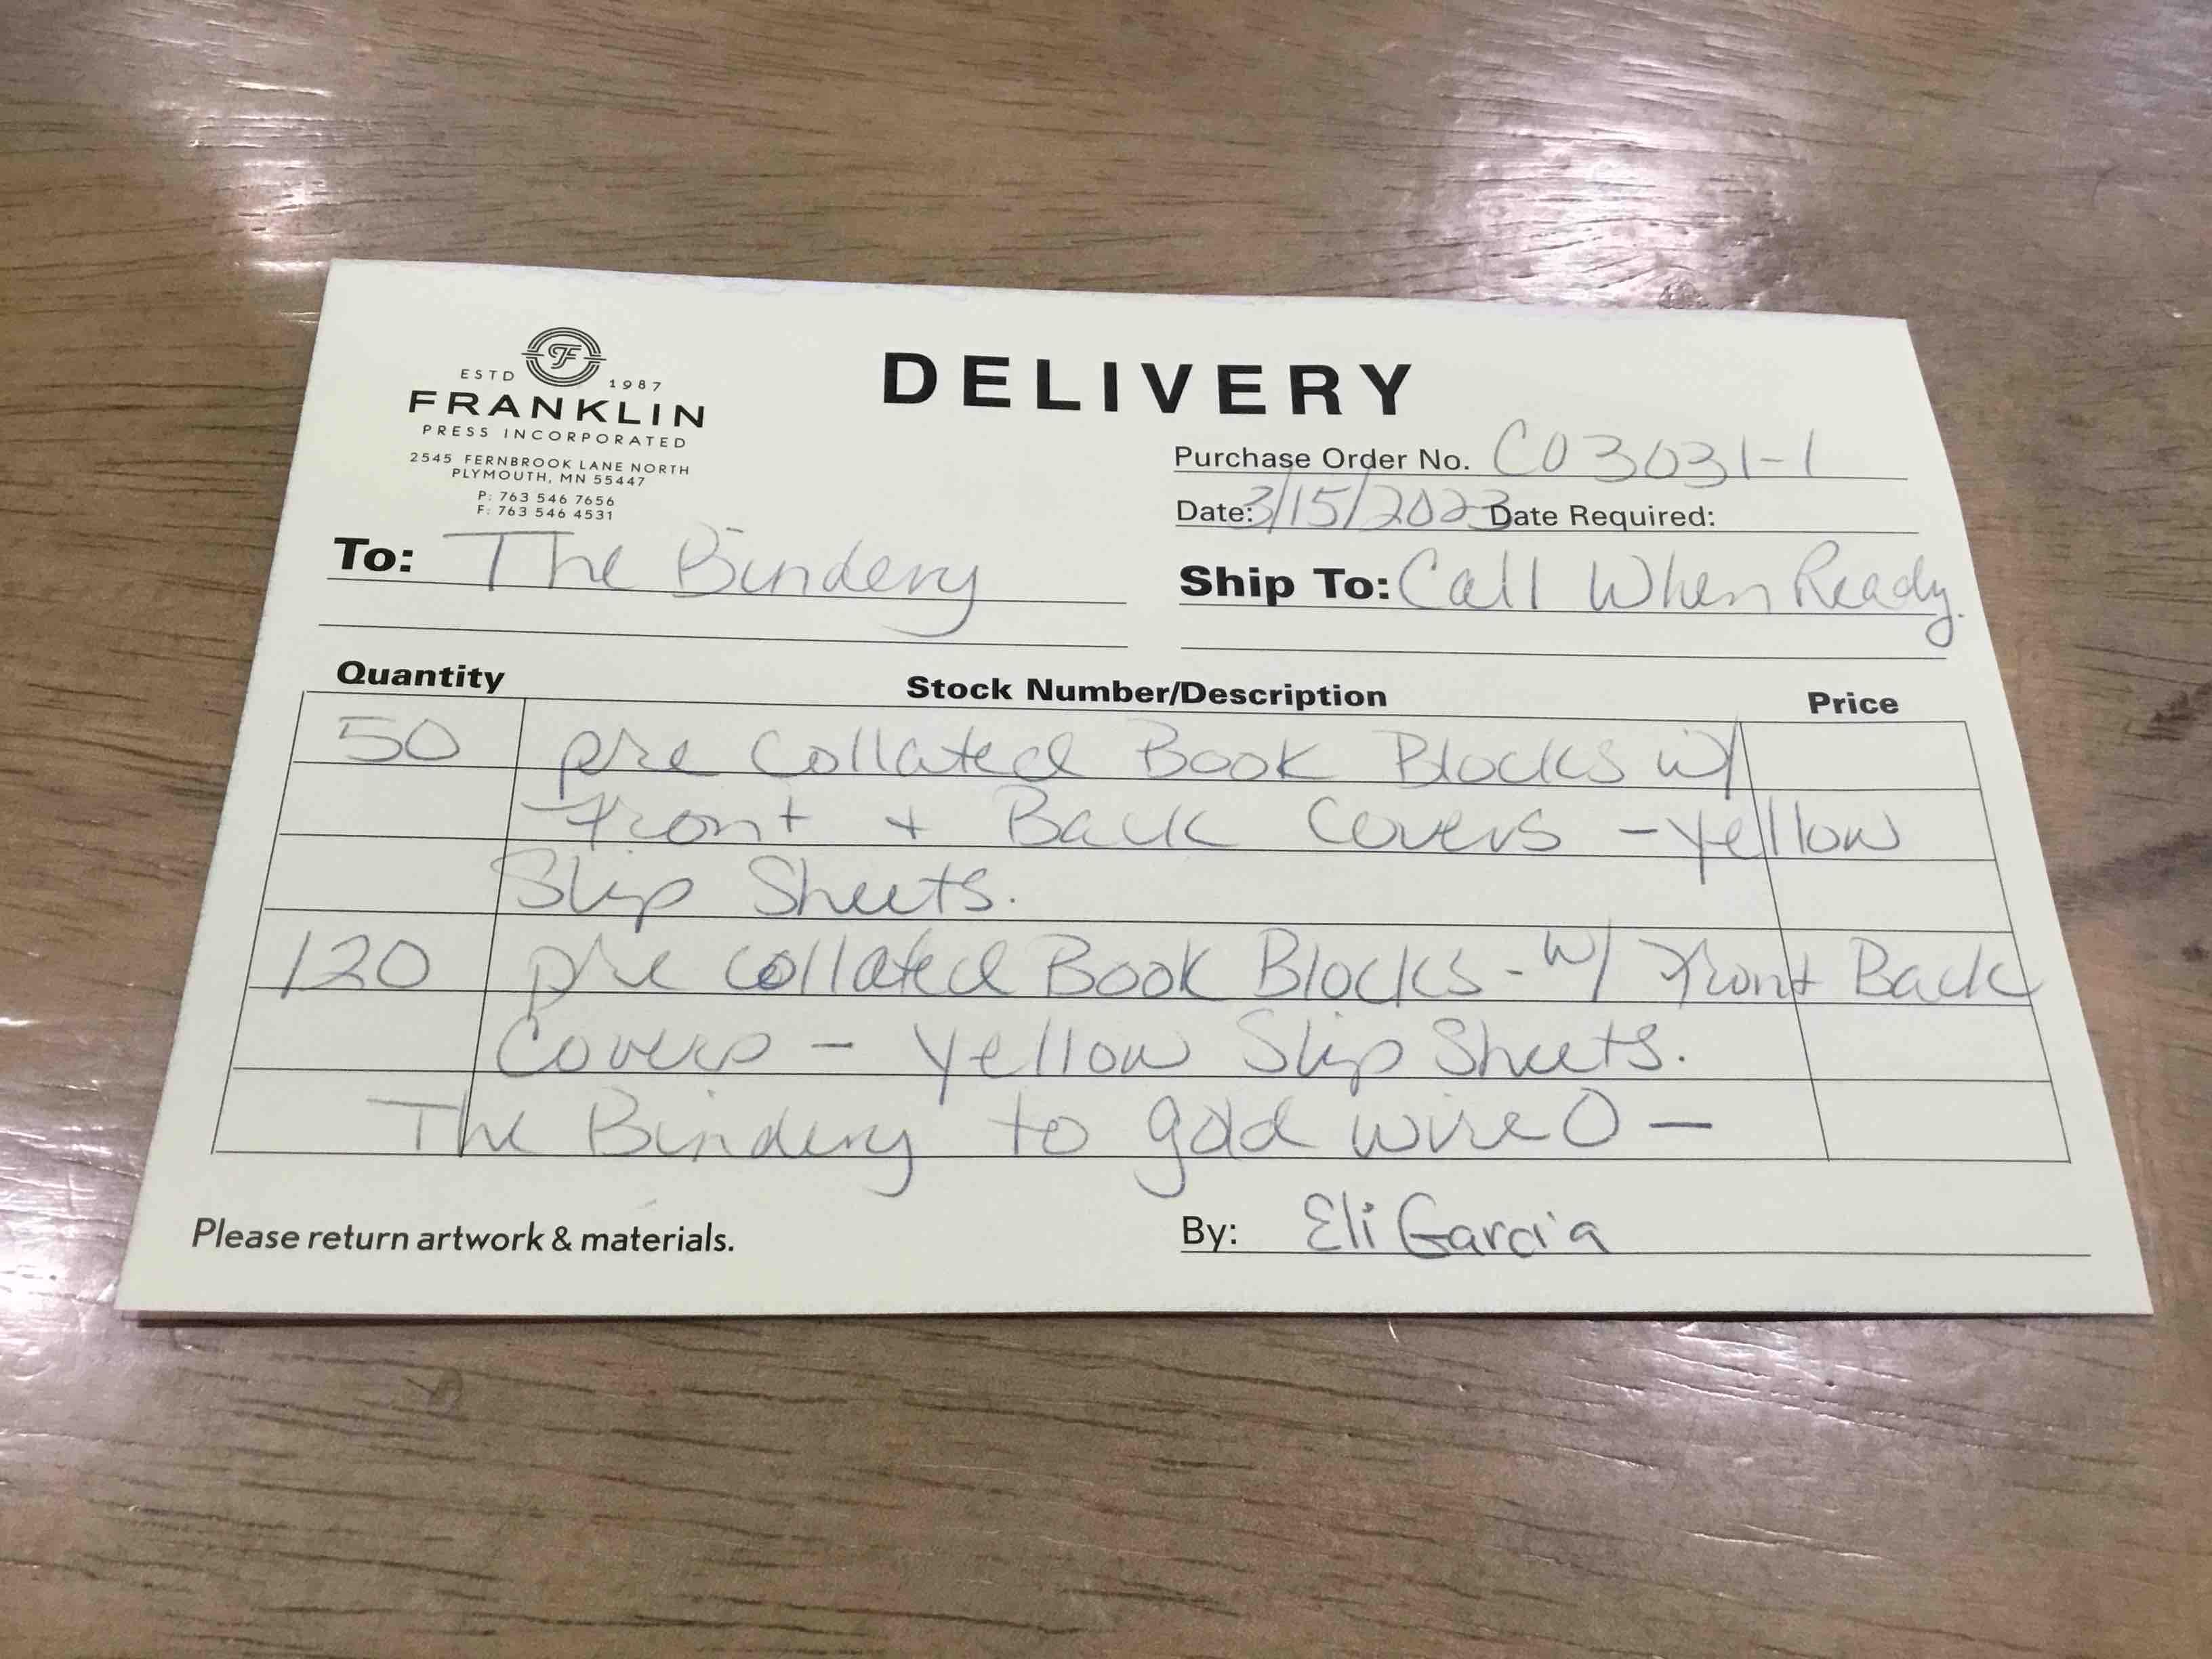 ESTD 1987
FRANKLIN
PRESS INCORPORATED
2545 FERNBROOK LANE NORTH
PLYMOUTH, MN 55447
P: 763 546 7656
F: 763 546 4531
DELIVERY
Purchase Order No. CO3031-1
Date: 3/15/2023 Date Required:
To: The Bindery
Ship To: Call When Ready.
Quantity Stock Number/Description Price
50 pre Collated Book Blocks w/
Front + Back Covers - Yellow
Slip Sheets.
120 pre collated Book Blocks - w/ Front Back
Covers - Yellow Slip Sheets.
The Bindery to gold wire O -
Please return artwork & materials.
By: Eli Garcia